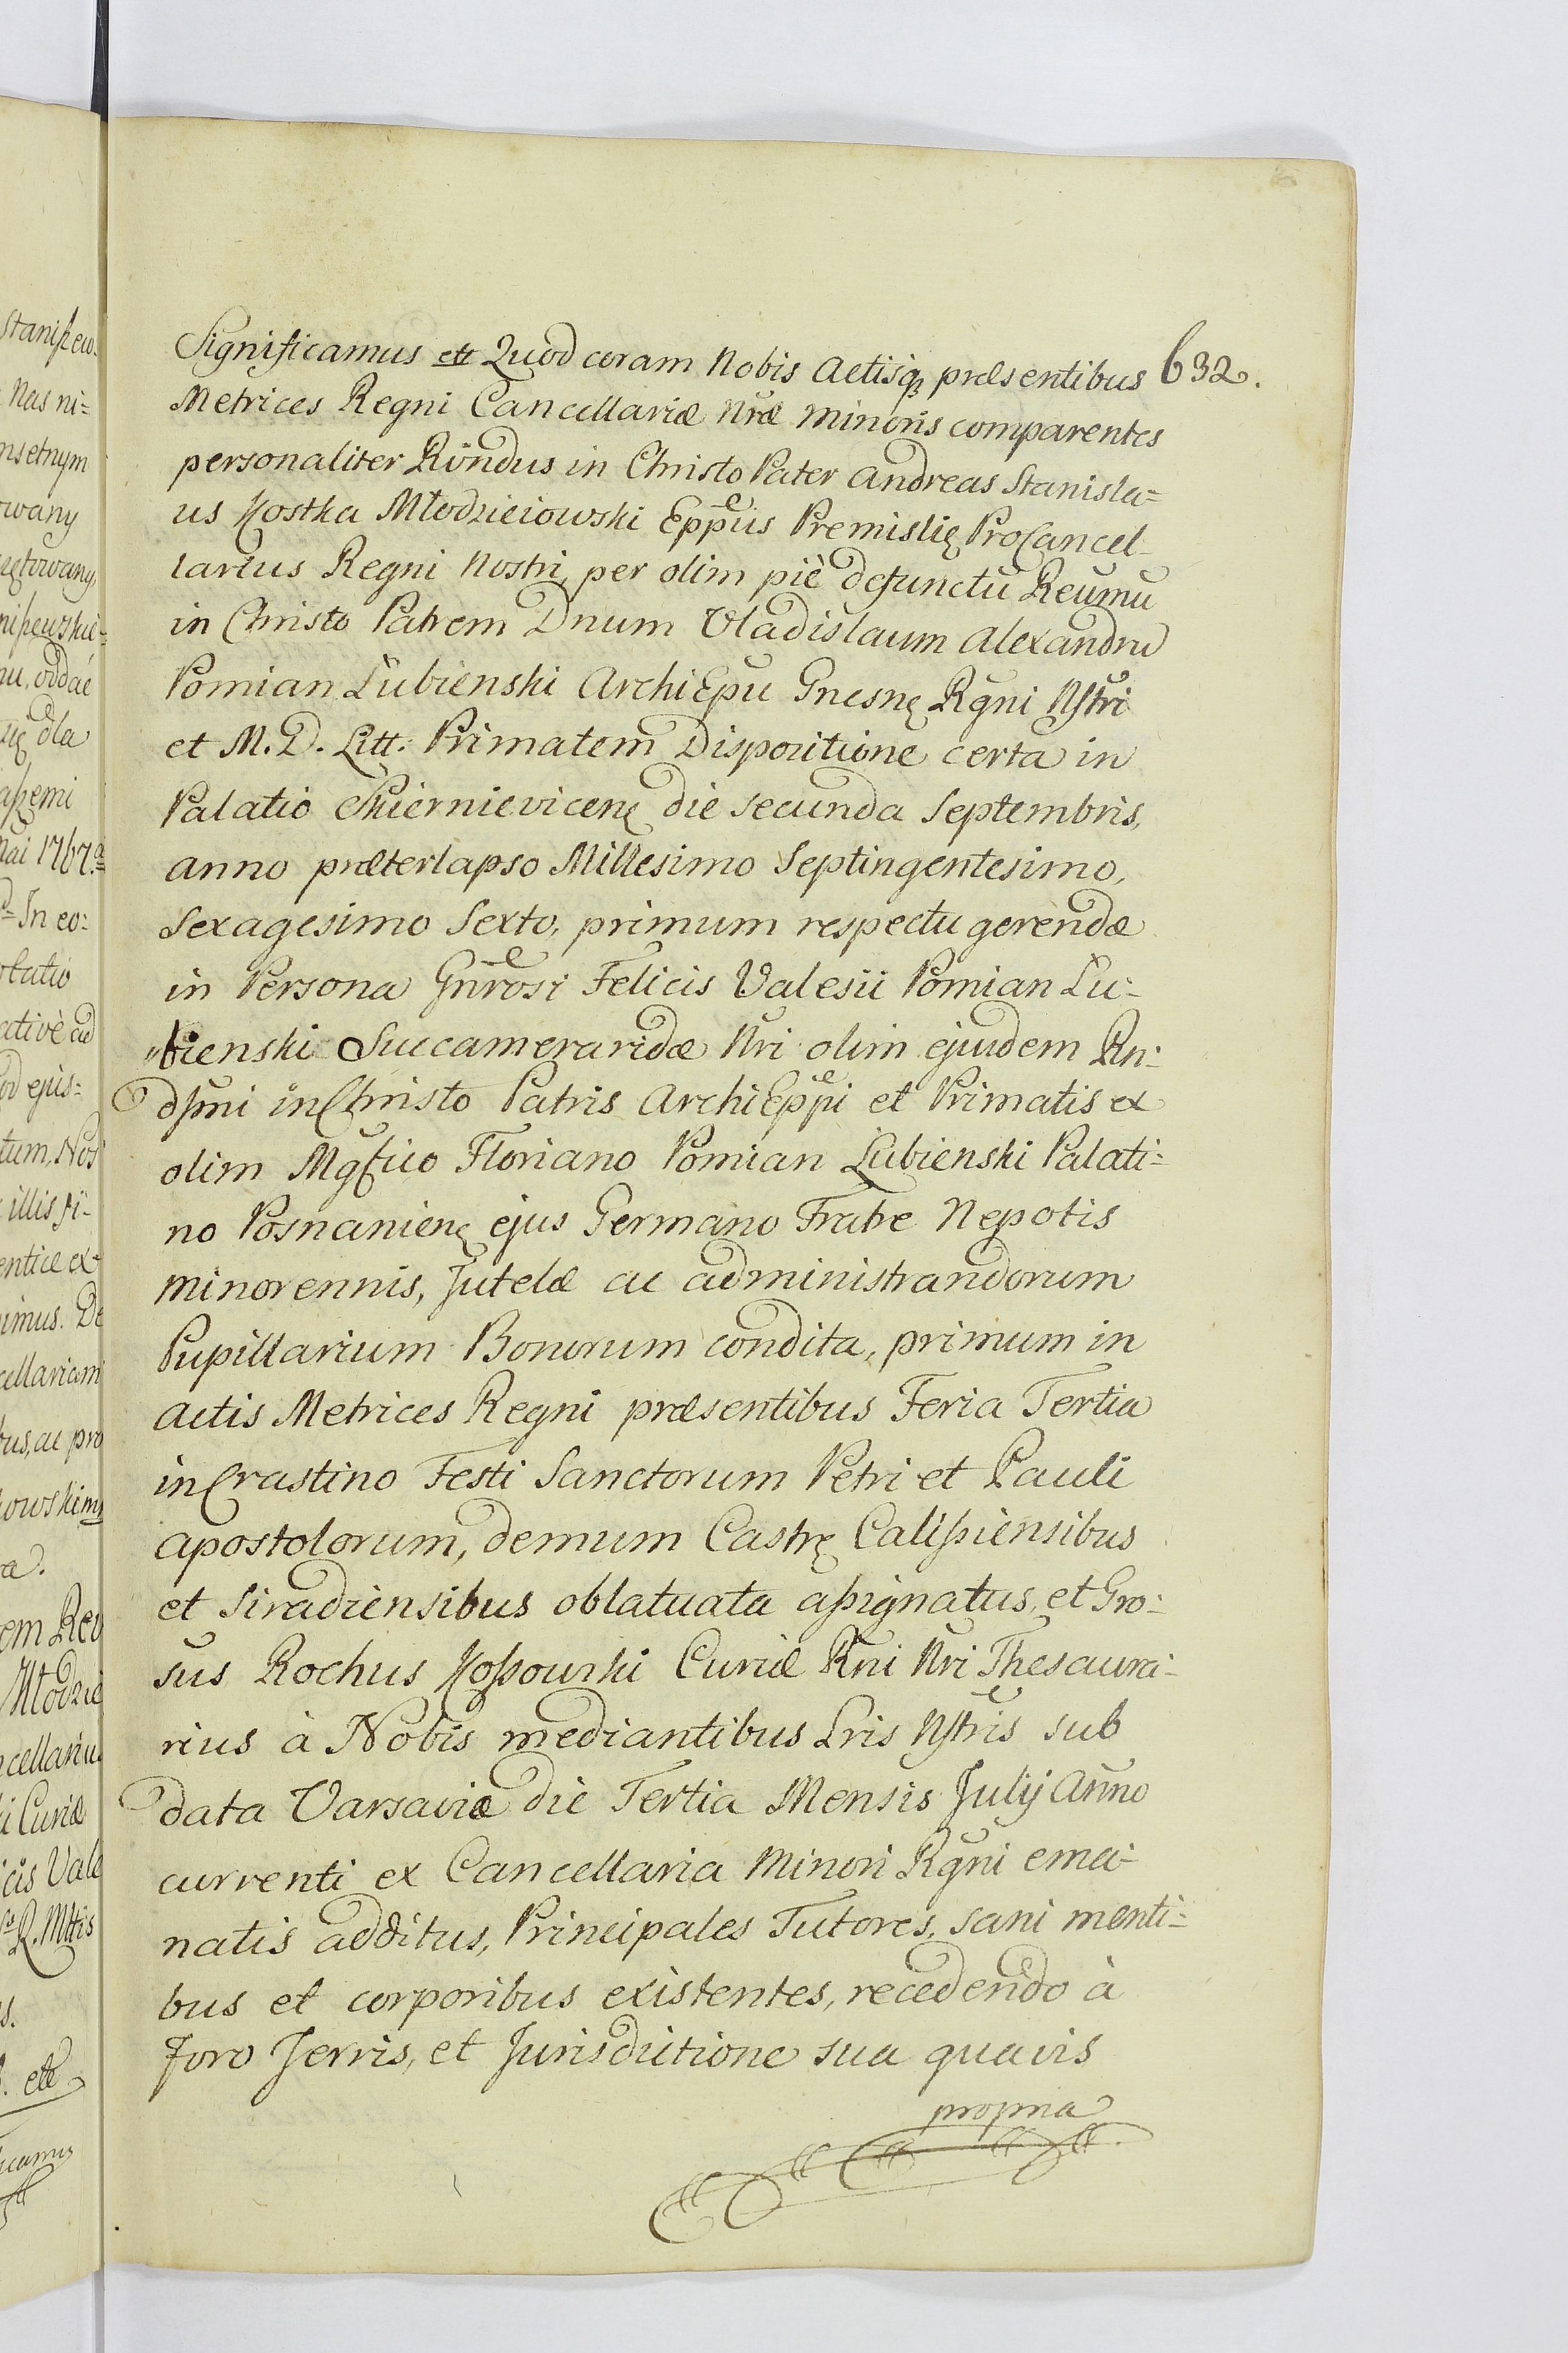 632.
Significamus ett Quod coram Nobis Actisq̨ præsentibus
Metrices Regni Cancellariæ Nræ Minoris comparentes
personaliter Rñdus in Christo Pater Andreas Stanisla=
us Kostka Młodzieiowski Eppus Premislię ProCancel-
larius Regni Nostri, per olim piè defunctũ Reũmũ
in Christo Patrem Dnum Vladislaum Alexandrũ
Pomian Łubienski ArchiEpũ Gnesnę Rgni Nstri
et M. D. Litt: Primatem Dispozitione certa in
Palatio Skiernievicenę die secunda Septembris,
anno præterlapso Millesimo Septingentesimo,
Sexagesimo Sexto, primum respectu gerendæ
in Persona Gnrosi Felicis Valesii Pomian Łu-
bienski Succameraridæ Nri olim ejusdem Rn:
dsmi in Christo Patris ArchiEppi et Primatis ex
olim Mgfico Floriano Pomian Łubienski Palati=
no Posnanienę ejus Germano Fratre Nepotis
minorennis, Tutelæ ac administrandorum
Pupillarium Bonorum condita, primum in
Actis Metrices Regni præsentibus Feria Tertia
in Crastino Festi Sanctorum Petri et Pauli
Apostolorum, demum Castrę Calissiensibus
et Siradiensibus oblatuata assignatus, et Gro:
sus Rochus Kossowski Curiæ Rni Nri Thesaura-
rius à Nobis mediantibus Lris Nstris sub
data Varsaviæ die Tertia Mensis Julij Anno
currenti ex Cancellaria Minori Rgni ema-
natis additus, Principales Tutores, sani menti=
bus et corporibus existentes, recedendo à
Foro Terris, et Jurisdictione sua quavis
propria